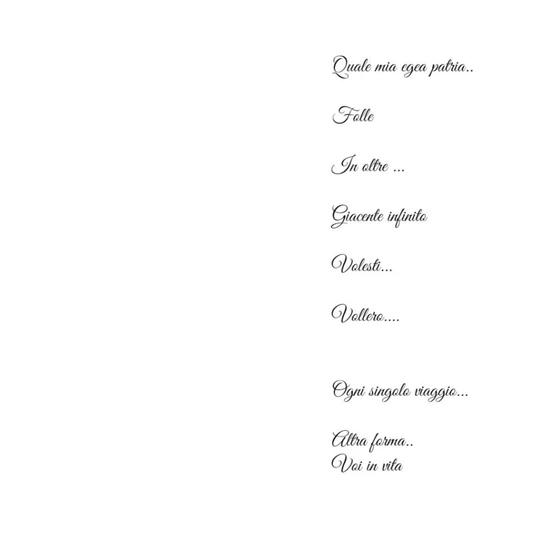 Quale mia egea patria..
Folle
In oltre ...
Giacente infinito
Volesti...
Vollero....
Ogni singolo viaggio...
Altra forma..
Voi in vita